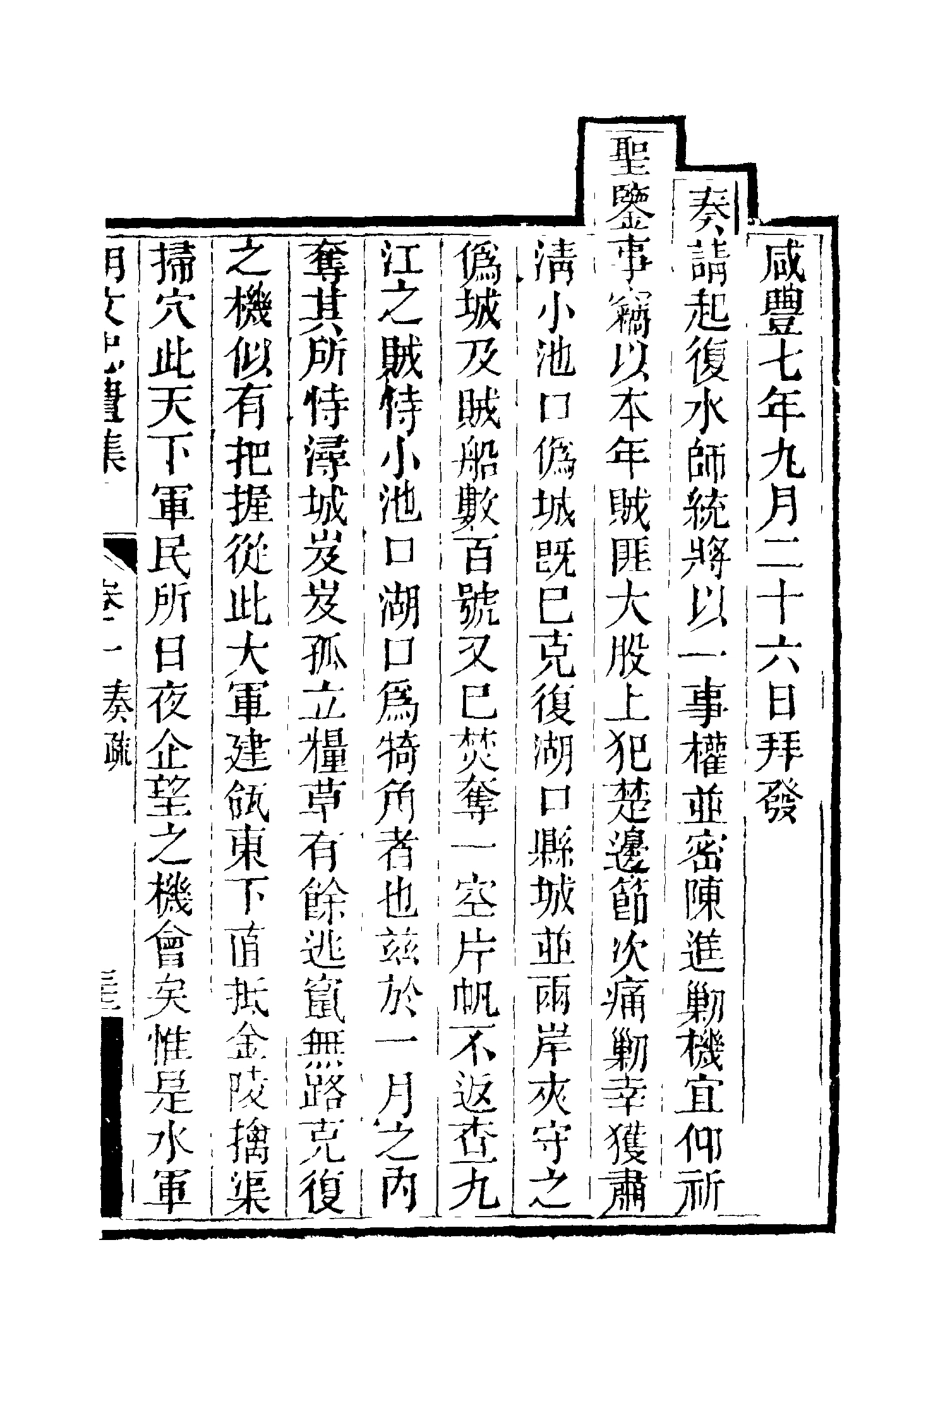 咸豐七年九月二十六日拜發
奏請起復水師統將以一事權並密陳進勦機宜仰祈
聖鑒事竊以本年賊匪大股上犯楚邊節次痛勦幸獲肅
清小池口僞城既已克復湖口縣城並兩岸夾守之
僞城及賊船數百號又已焚奪一空片帆不返查九
江之賊恃小池口湖口爲犄角者也茲於一月之內
奪其所恃潯城岌岌孤立糧草有餘逃竄無路克復
之機似有把握從此大軍建瓴東下直抵金陵擒渠
掃穴此天下軍民所日夜企望之機會矣惟是水軍
胡文忠遺集 卷一 奏疏